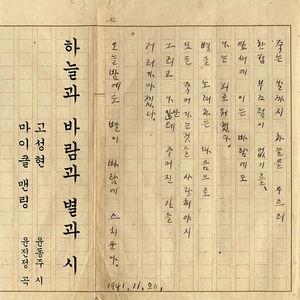 No.
죽는 날까지 하늘을 우르러
한점 부끄럼이 없기를,
잎새에 이는 바람에도
나는 괴로워했다.
별을 노래하는 마음으로
모든 죽어가는것을 사랑해야지
그리고 나안테 주어진 길을
거러가야겠다.
오늘밤에도 별이 바람에 스치운다.
1941.11.20.
하늘과 바람과 별과 시
고성현 윤동주 시
마이클 맨링 윤진정 곡